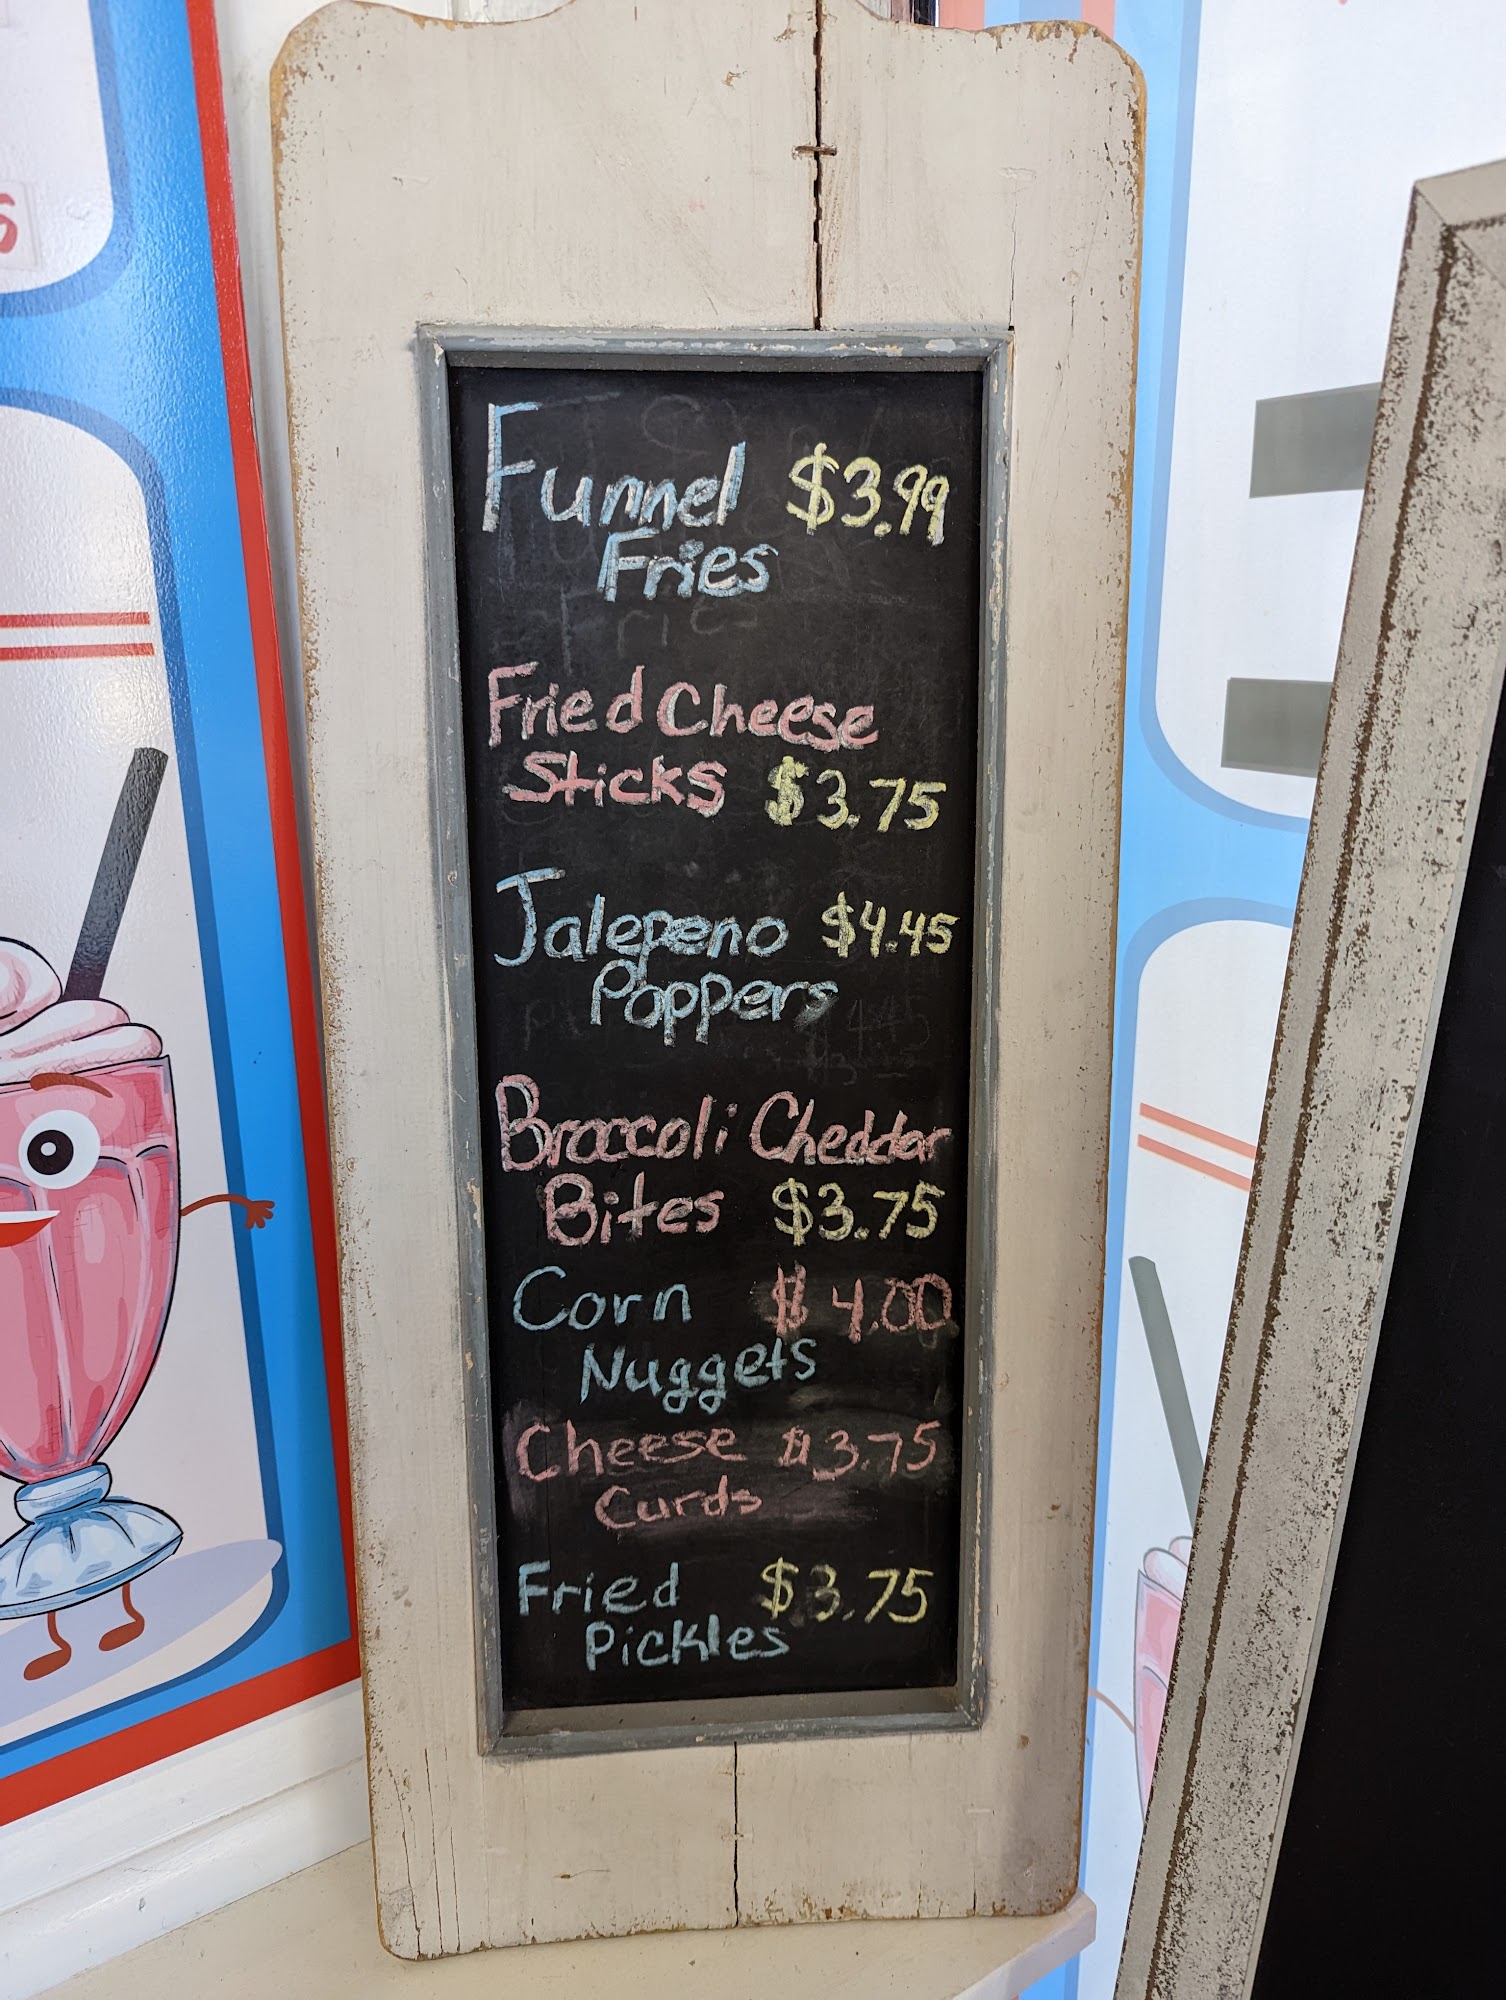 Funnel $3.99
Fries
Fried Cheese
Sticks $3.75
Jalepeno $4.45
Poppers
Broccoli Cheddar
Bites $3.75
Corn $4.00
Nuggets
Cheese $3.75
Curds
Fried $3.75
Pickles